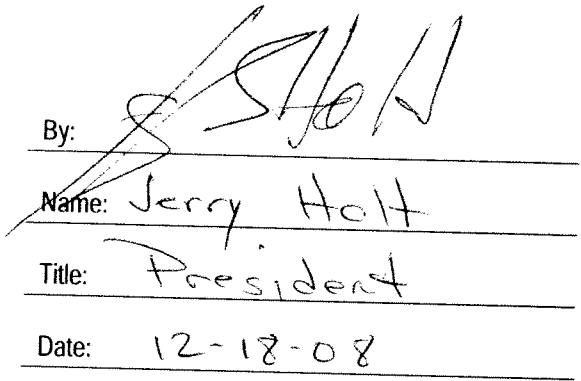 By:
Name: Jerry Holt
Title: President
Date: 12-18-08